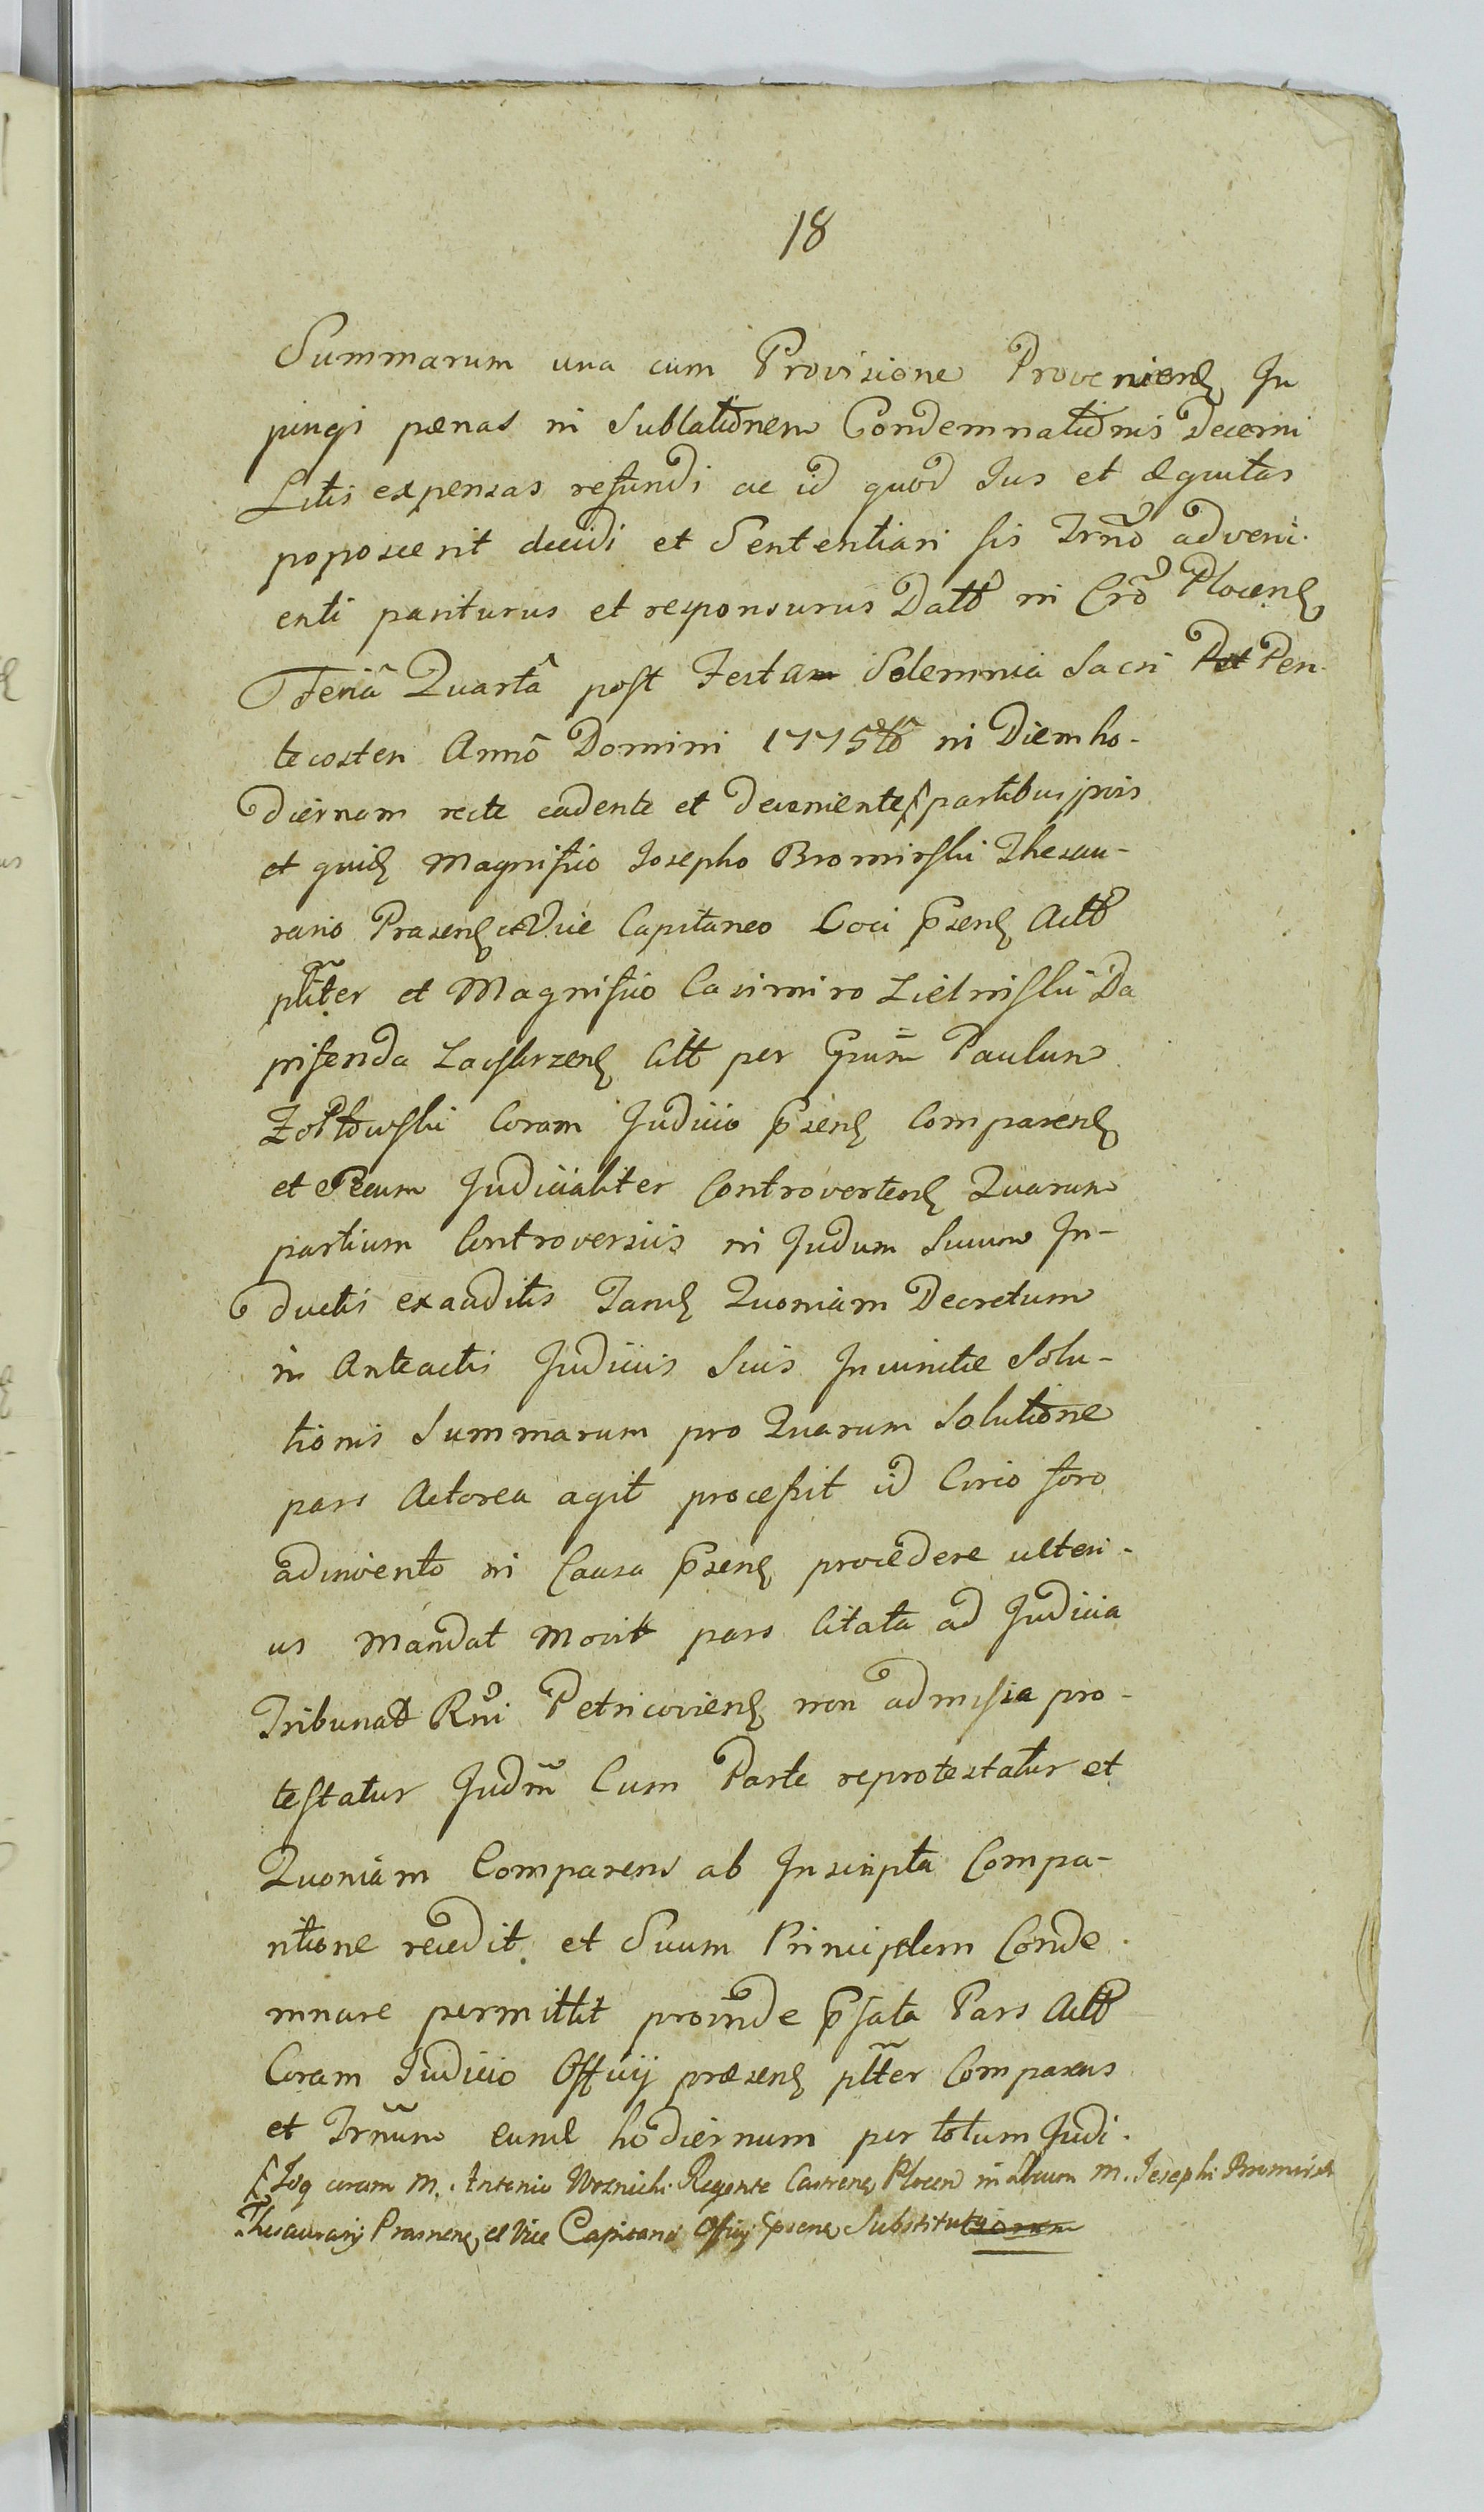 18
Summarum una cum Provisione Provenienẽ In
pingi pœnas in Sublationem Condemnationis Decerni
Litis expensas refundi ac id quod Jus et Æquitas
poposcerit decidi et Sententiari sis Trño adveni-
enti pariturus et responsurus Datt in Cro Plocenẽ
Feria Quarta post Festa Solemnia Sacri Pen-
tecosten Anno Domini 1775to in Diem ho-
diernam recte cadente et deveniente partibus ipsis
et quiẽ Magnifico Josepho Bromirski Thesau-
rario Prasenẽ et Vice Capitaneo Loci psenẽ Actt
pltter et Magnifico Casimiro Zielinski Da
pifenda Zacskrzenẽ Citt per Gnum Paulum
Żołtowski Coram Judicio psenẽ Comparenẽ
et Secum Judicialiter Controvertenẽ Quarum
partium Controversiis in Judum Suum In-
ductis exauditis Tanẽ Quoniam Decretum
in Anteactis Judiciis Suis Inuinctæ Solu-
tionis Summarum pro Quarum Solutione
pars Actorea agit processit id Circo foro
adinvento in Causa psenẽ procedere ulteri-
us Mandat Movit pars Citata ad Judicia
Tribunatt Rñi Petricovienẽ non admissa pro-
testatur Judm Cum Parte reprotestatur et
Quoniam Comparens ab Inscripta Compa-
ritione recedit et Suum Principlem Conde
mnare permittit proinde psata Pars Actt
Coram Judicio Officij præsenẽ pltter Comparens
et Trñum eunẽ hodiernum per totum Judi-
Joq coram M. Antonio Woznicki Regente Castrenẽ Plocen in locum M. Josephi Bromirski
Thesaurarij Prasnenẽ et Vice Capitanei Officij psenẽ Substituto